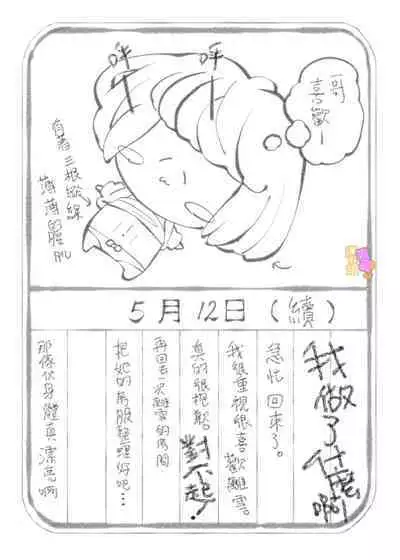 哥
喜歡～
呼
呼
有著三根縱線
薄薄的體肌
5月12日(續)
我做了什麼啊
急忙回來了。
我很重視很喜歡離雲。
真的很抱歉。對不起！
再回去一次離雲的房間
把她的衣服整理好吧…
那傢伙身體真漂亮啊